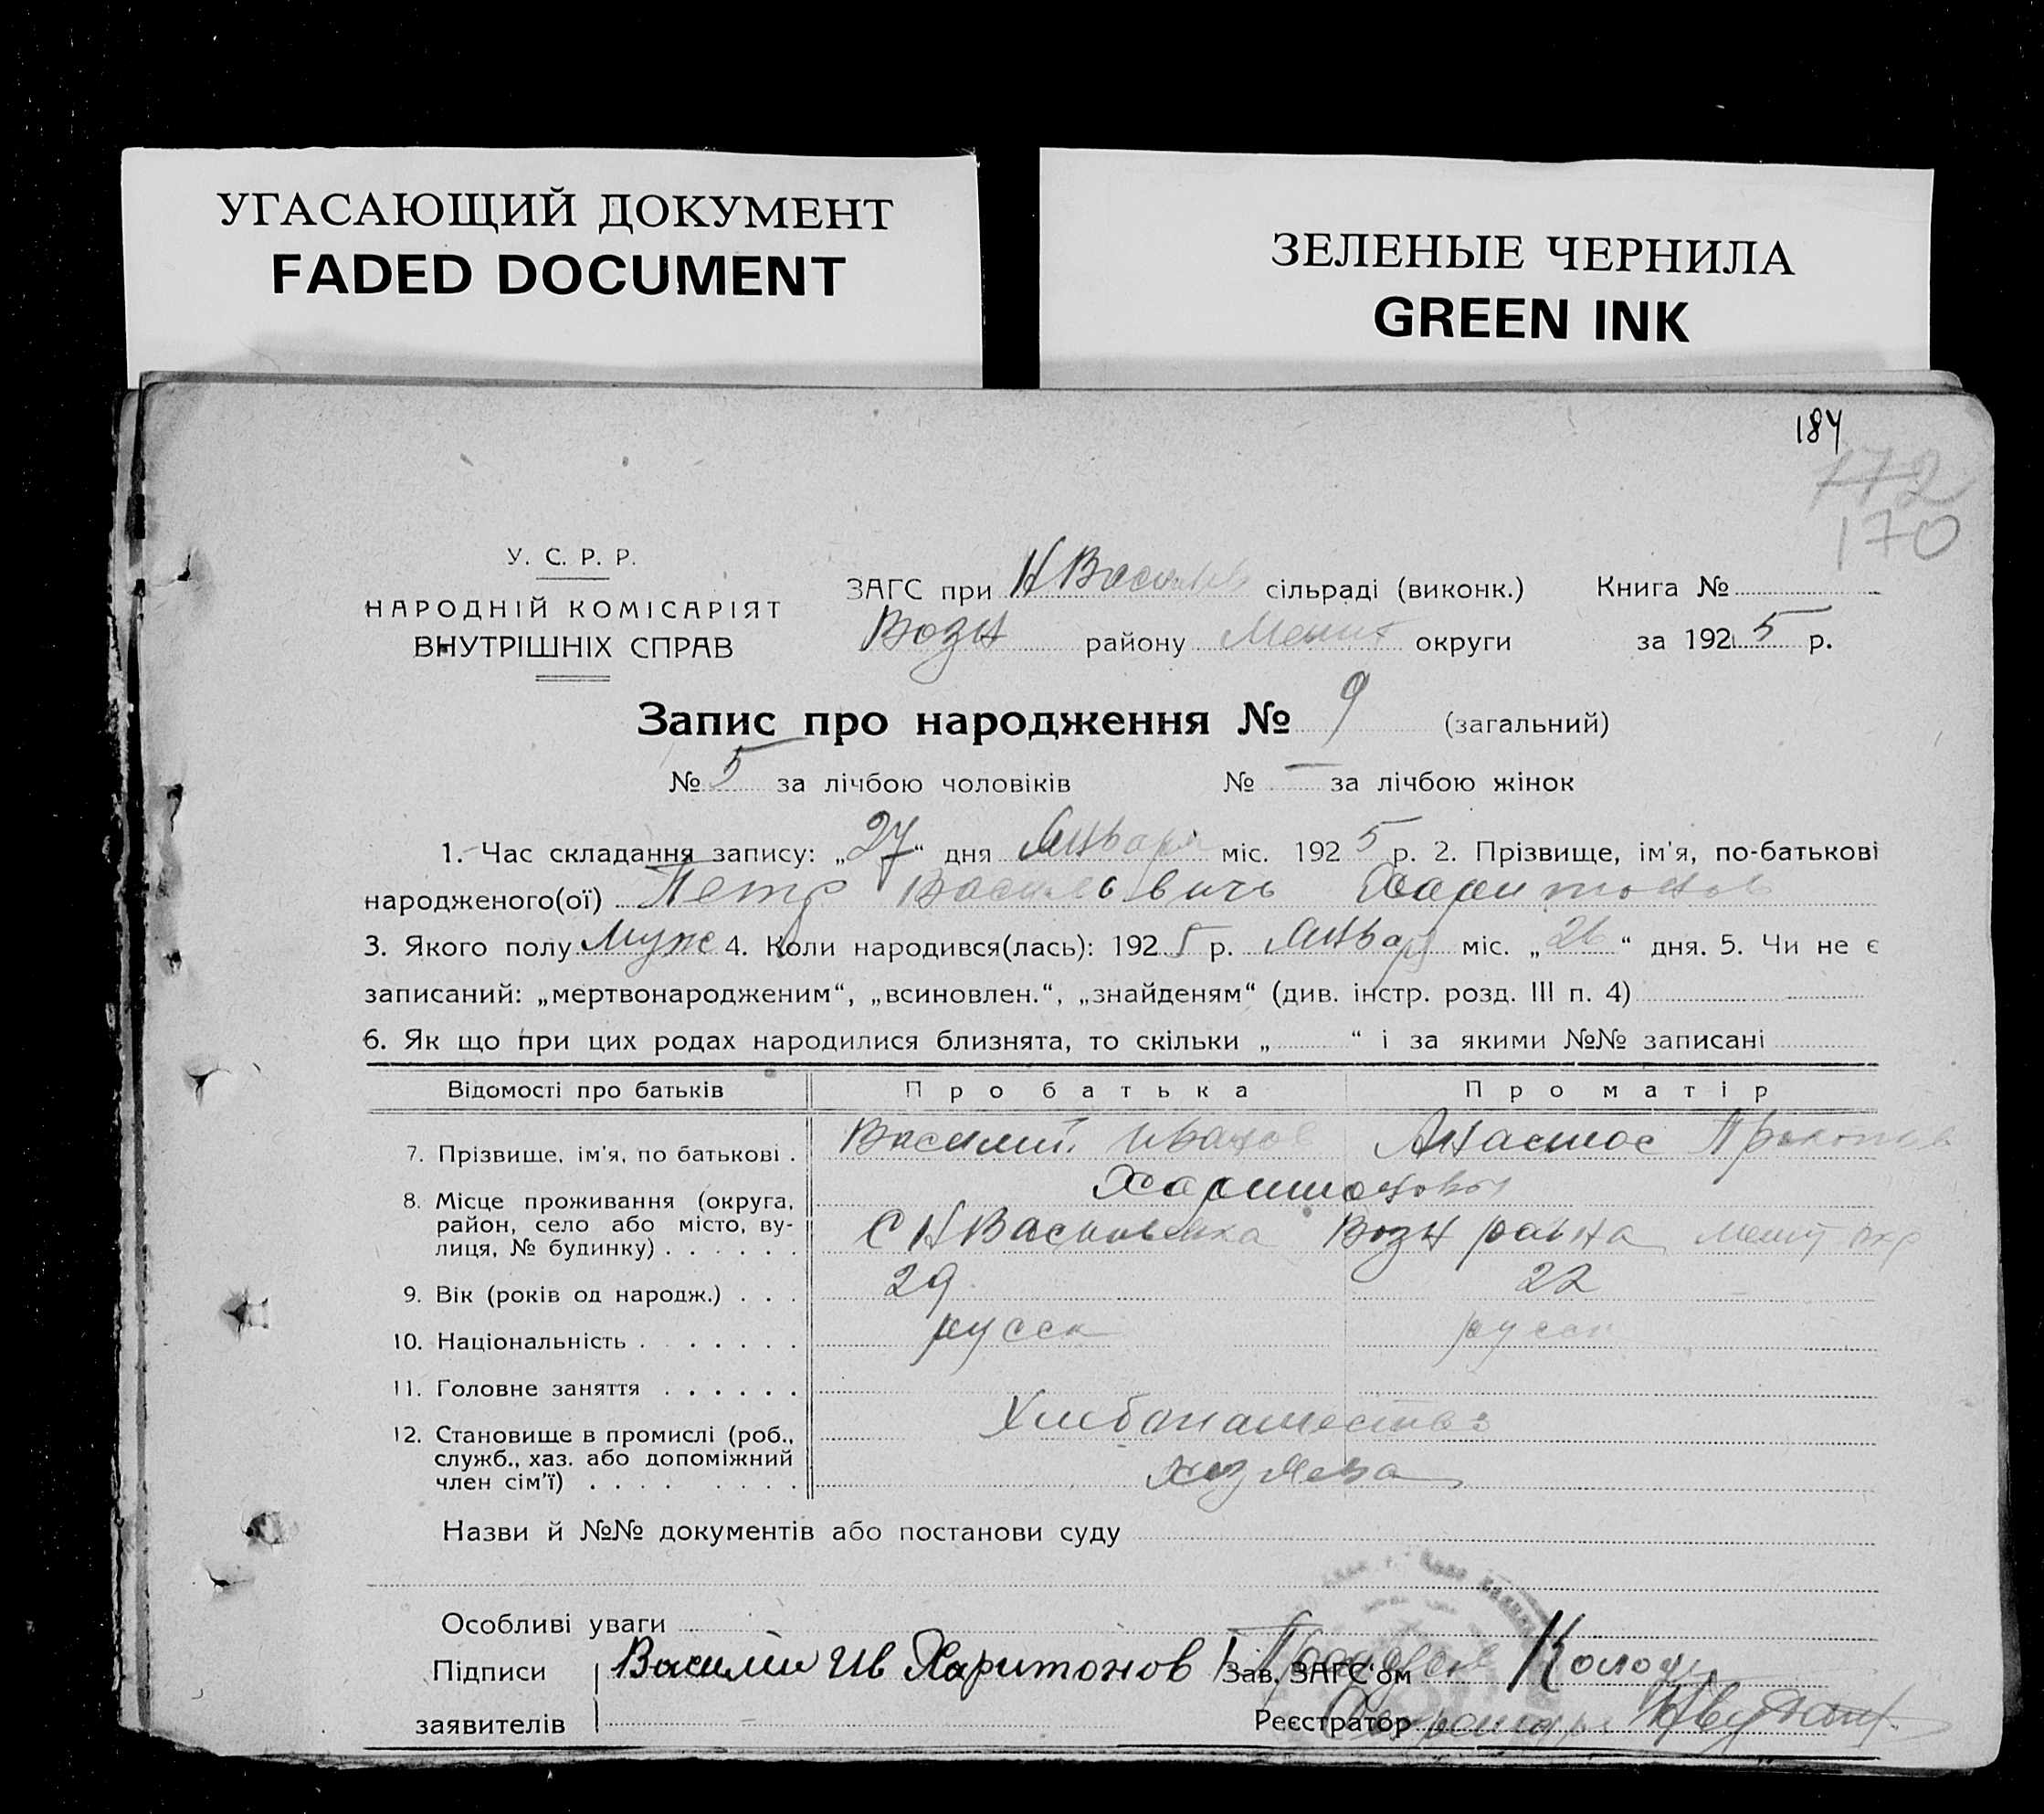 УГАСАЮЩИЙ ДОКУМЕНТ
FADED DOCUMENT
ЗЕЛЕНЫЕ ЧЕРНИЛА
GREEN INK
184
172
170
У. С. Р. Р.
НАРОДНІЙ КОМІСАРІЯТ
ВНУТРІШНІХ СПРАВ
ЗАГС при Н Василів сільраді (виконк.) Книга №
Возн району Мелит округи за 1925 р.
Запис про народження № 9 (загальний)
№ 5 за лічбою чоловіків № — за лічбою жінок
1. Час складання запису: „27“ дня Января міс. 1925 р. 2. Прізвище, ім'я, по-батькові
народженого(ої) Петр Васильевичь Харитонов
3. Якого полу Муж 4. Коли народився(лась): 1925 р. Январ міс. „26“ дня. 5. Чи не є
записаний: „мертвонародженим“, „всиновлен.“, „знайденям“ (див. інстр. розд. III п. 4)
6. Як що при цих родах народилися близнята, то скільки „ “ і за якими №№ записані
Відомості про батьків Про батька Про матір
7. Прізвище, ім'я, по батькові . Василий Иванов Анастас Прокопов
Харитоновы
8. Місце проживання (округа,
район, село або місто, ву-
лиця, № будинку) . . . . . . С Н Васильевка Возн район Мелит окр
9. Вік (років од народж.) . . . 29 22
10. Національність . . . . . . . русск русск
11. Головне заняття . . . . . .
Хлебопашество
12. Становище в промислі (роб.,
служб., хаз. або допоміжний
член сім'ї) . . . . . . . . . хозяева
Назви й №№ документів або постанови суду
Особливі уваги
Підписи Василий Ив Харитонов Зав. ЗАГС'ом
заявителів Реєстратор